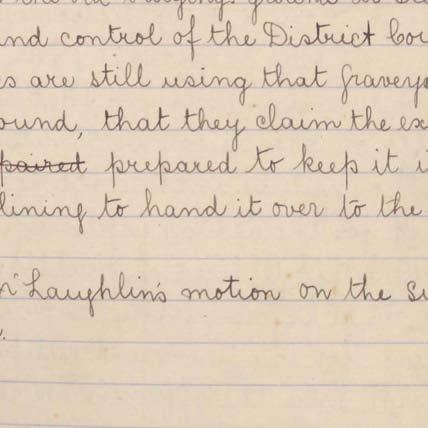 burying ground
and control of the District Cou
s are still using that graveya
ound, that they claim the ex
paired prepared to keep it i
lining to hand it over to the
m'Laughlin's motion on the su